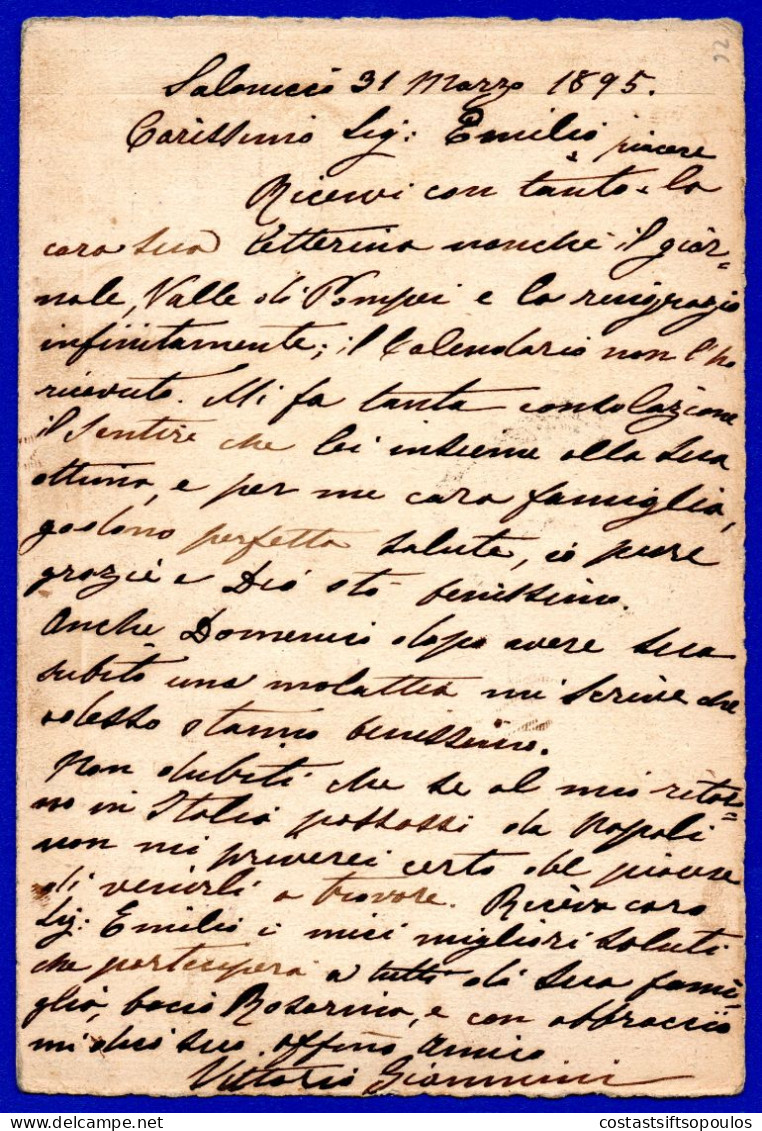 72
Salonicco 31 Marzo 1895.
Carissimo Sig: Emilio
piacere
Ricevei con tanto la
cara sua letterina nonchè il gior=
nale, Valle di Pompei e la ringrazio
infinitamente; il Calendario non l'ho
ricevuto. Mi fa tanta consolazione
il sentire che lei insieme alla sua
ottima, e per me cara famiglia,
godono perfetta salute, io pure
grazie a Dio stò benissimo.
Anche Domenico dopo avere sua
subito una malattia mi scrive che
adesso stanno benissimo.
Non dubiti che se al mio ritor=
no in Italia passassi da Napoli
non mi priverei certo del piacere
di venirli a trovare. Riceva caro
Sig: Emilio i miei migliori saluti
che parteciperà a tutta di sua fami=
glia, bacio Rosarina, e con abbraccio
mi dico suo affmo Amico
Vittorio Giannini
costastsiftsopoulos